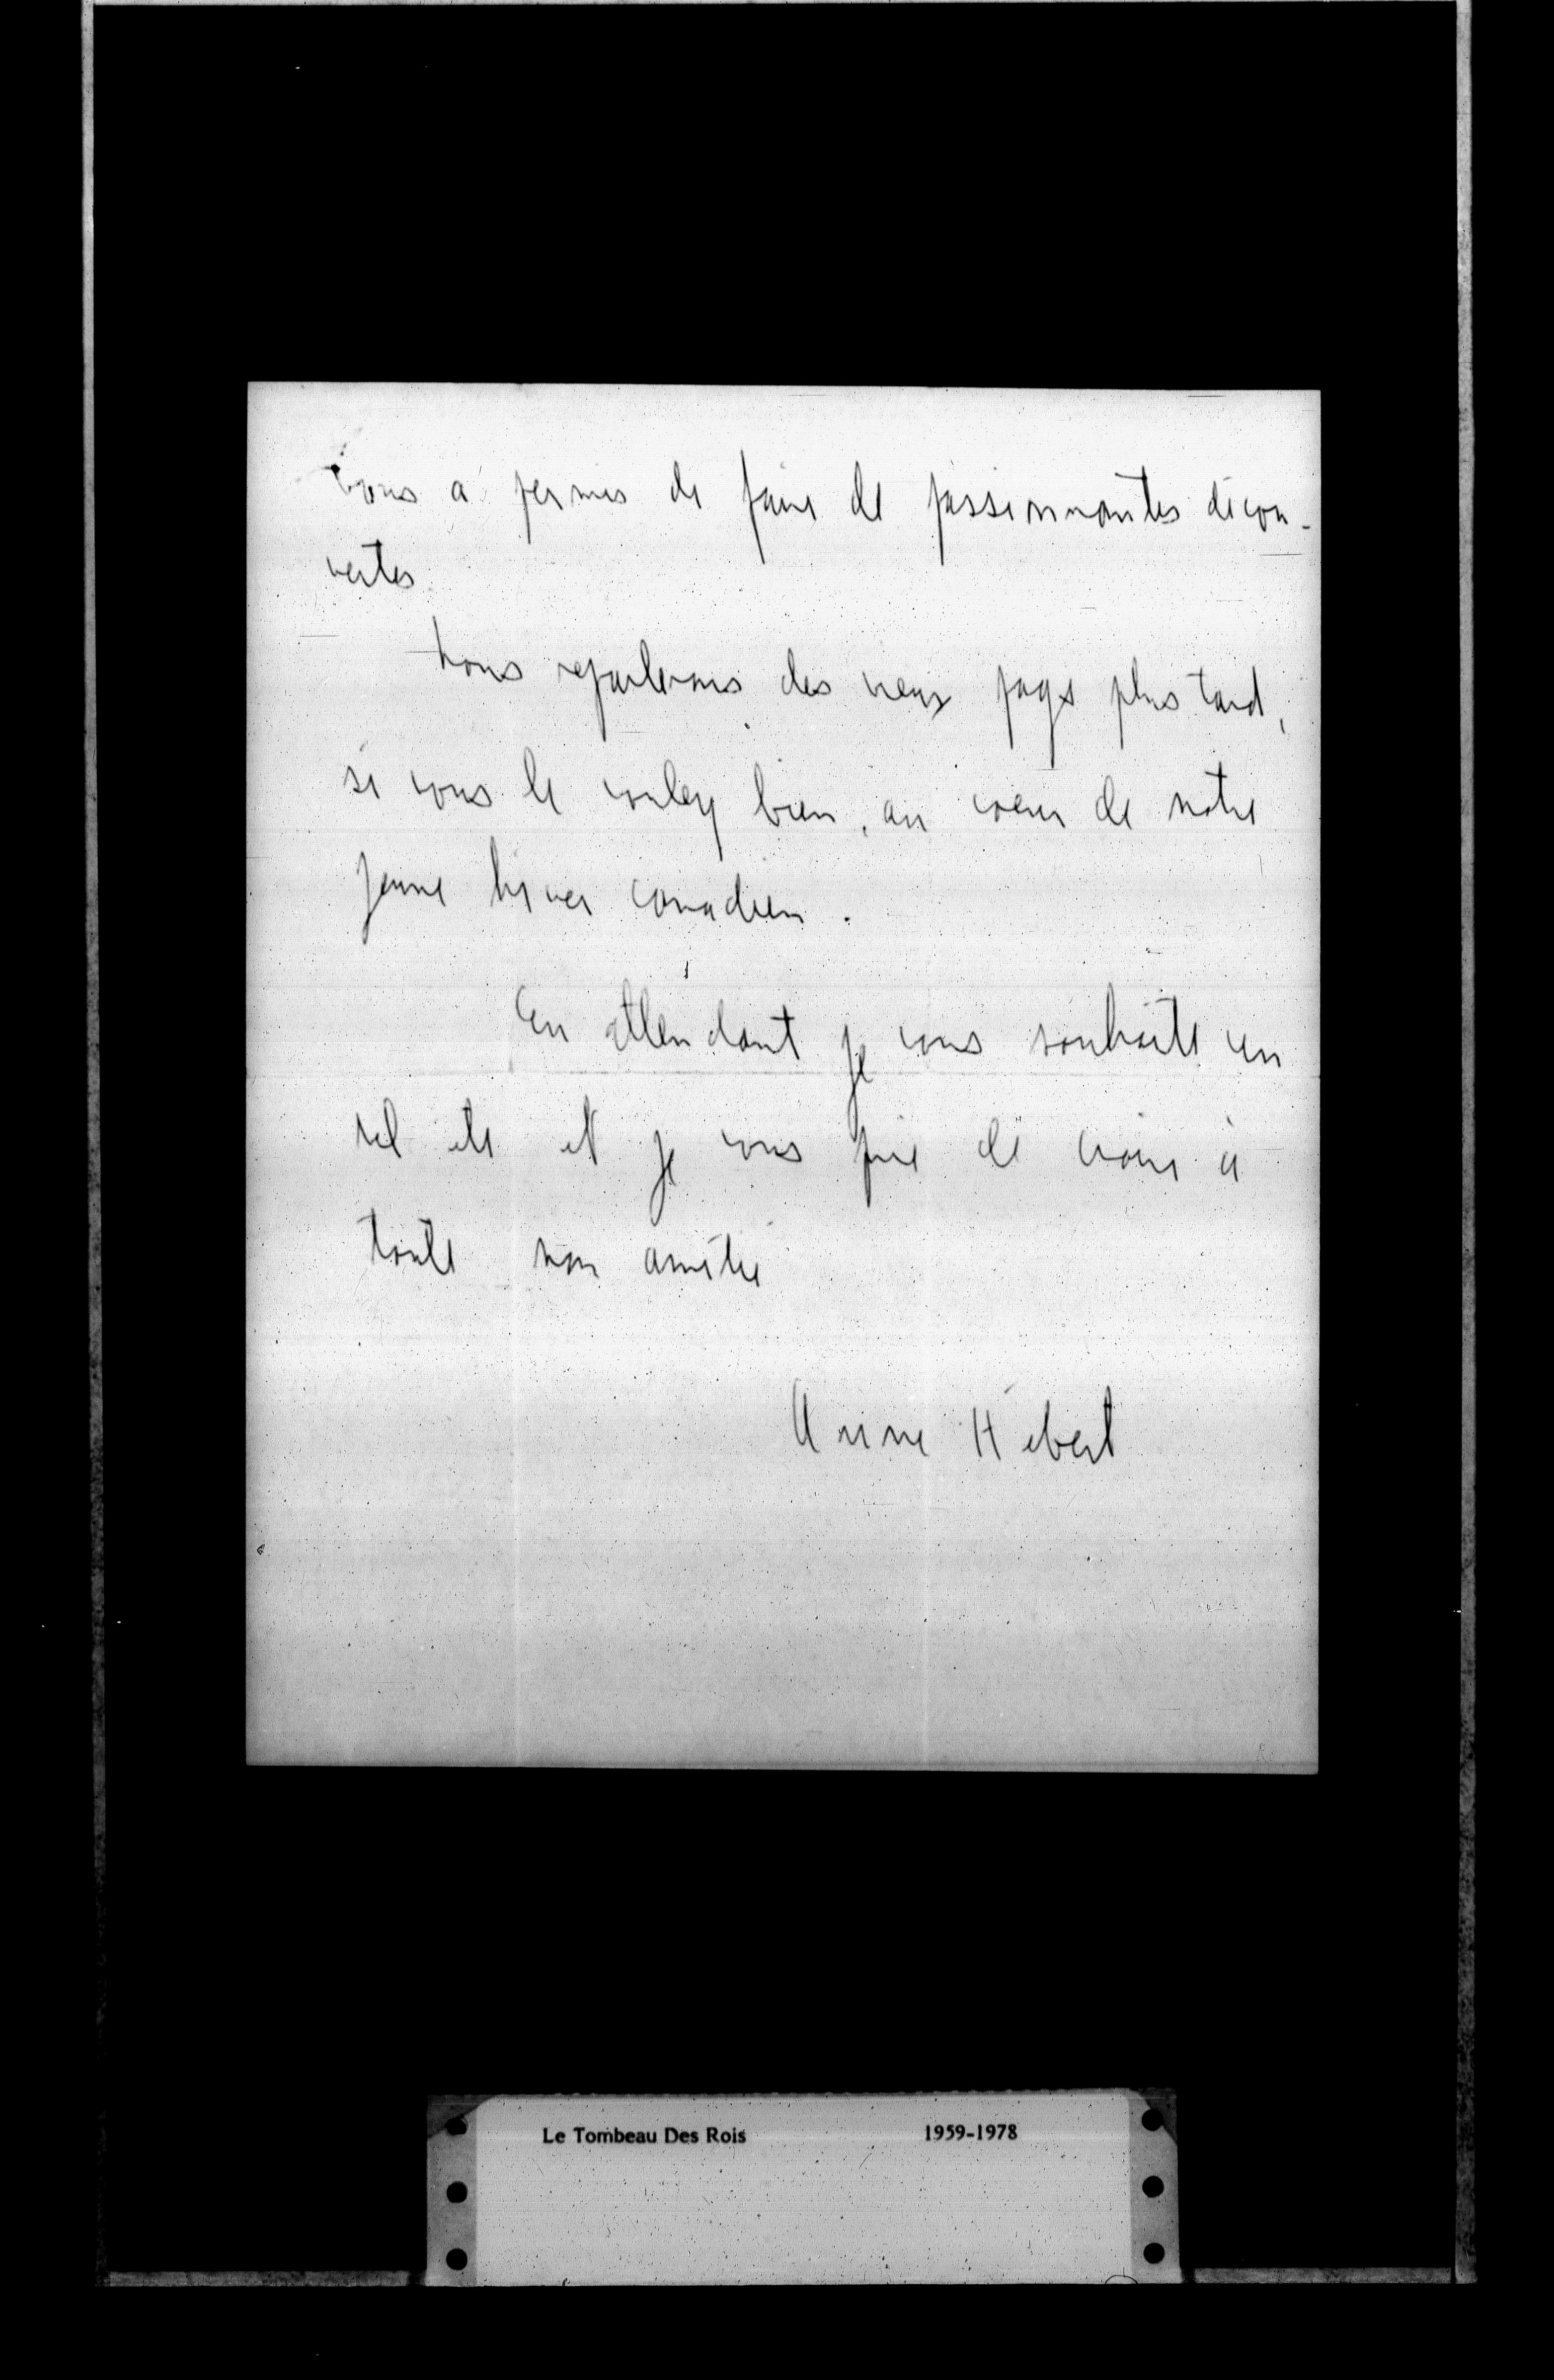 vous a permis de faire de passionnantes décou-
vertes.
Nous reparlerons des vieux pays plus tard,
si vous le voulez bien, au coeur de notre
jeune hiver canadien.
En attendant je vous souhaite un
bel été et je vous prie de croire à
toute mon amitié
Anne Hébert
Le Tombeau Des Rois 1959-1978